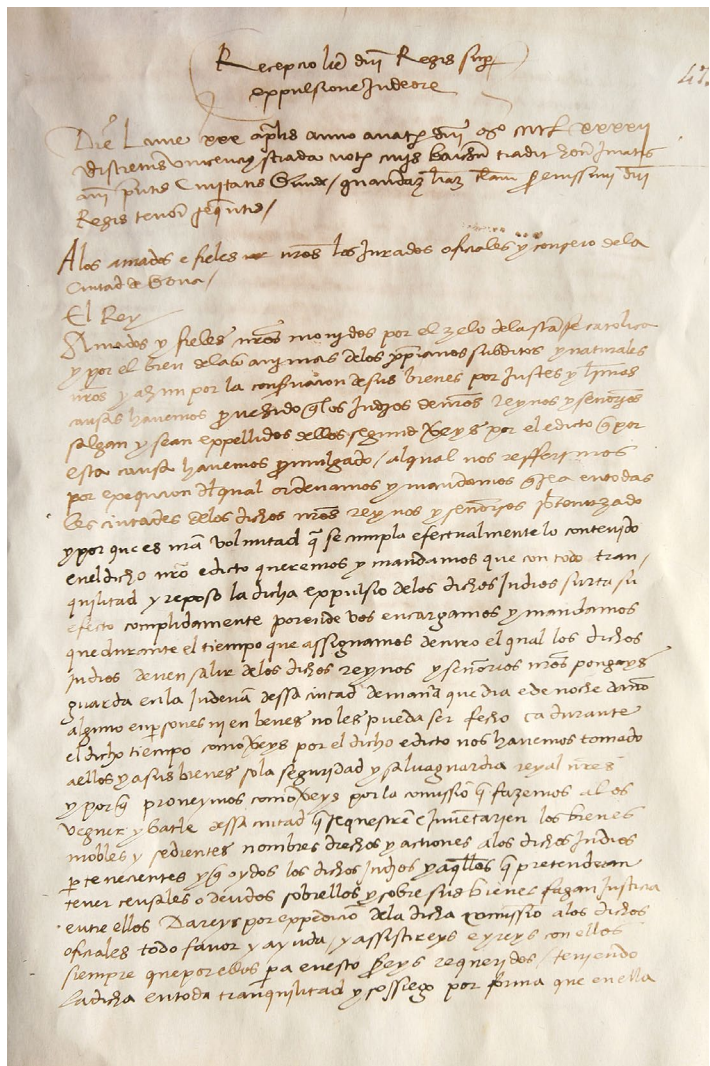 Recepcio lre dni Regis super
expulsione Judeorum
47
Die Lune xxx aprilis anno a nat dni Mº CCCC LXXXXII
discretus vincencius strada not civis barchn tradit honor Juratis
anni pntis Civitatis Gerunde / quandam lram Serenissimi dni
Regis tenoris sequentis /
A los amados e fieles nros los Jurados oficiales y consejo de la
Ciutad de Gerona /
El Rey
Amados y fieles nros movidos por el zelo de la sta fe catolica
y por el bien de las animas de los xpianos subditos y naturales
nros y ahun por la conservacion de sus bienes por justes y ltimos
causas havemos provehido q los Judios de nros reynos y senorios
salgan y sean expellidos dellos segund vereys por el edicto q por
esta causa havemos promulgado / al qual nos refferimos
por exequcion del qual ordenamos y mandamos q sea en todas
les ciutades de los dichos nros reynos y senorios
y por que es nra voluntad q se cumpla efectualmente lo contenido
en el dicho nro edicto queremos y mandamos que con todo tran /
quilitad y reposo la dicha expulsio de los dichos Judios surta su
efecto complidamente porende vos encargamos y mandamos
que durante el tiempo que assignamos dentro el qual los dichos
judios deven salir de los dichos reynos y senorios nros pongays
guarda en la Juderia dessa ciutad de manera que dia e de noche
alguno en psones ni en benes no les pueda ser fecho ca durante
el dicho tiempo como vereys por el dicho edicto nos havemos tomado
a ellos y a sus bienes so la seguridad y salvaguardia reyal nres
y por q proveymos como vereys por la comissio q fazemos al os
veguer y batle dessa ciutad q sequestre e Inventarien los bienes
mobles y sedientes nombres drechos y actiones a los dichos Judios
pertenecientes y q oydos los dichos Judios y aqllos q pretenderan
tener censales o deudos sobrellos y sobre sus bienes fagan justicia
entre ellos Dareys por expedicio de la dicha comissio a los dichos
oficiales todo favor y ayuda / y assistireys e yreys con ellos
siempre que por ellos pa en esto sereys requeridos / teniendo
la dicha en toda tranquilitad y sossiego por forma que en ella